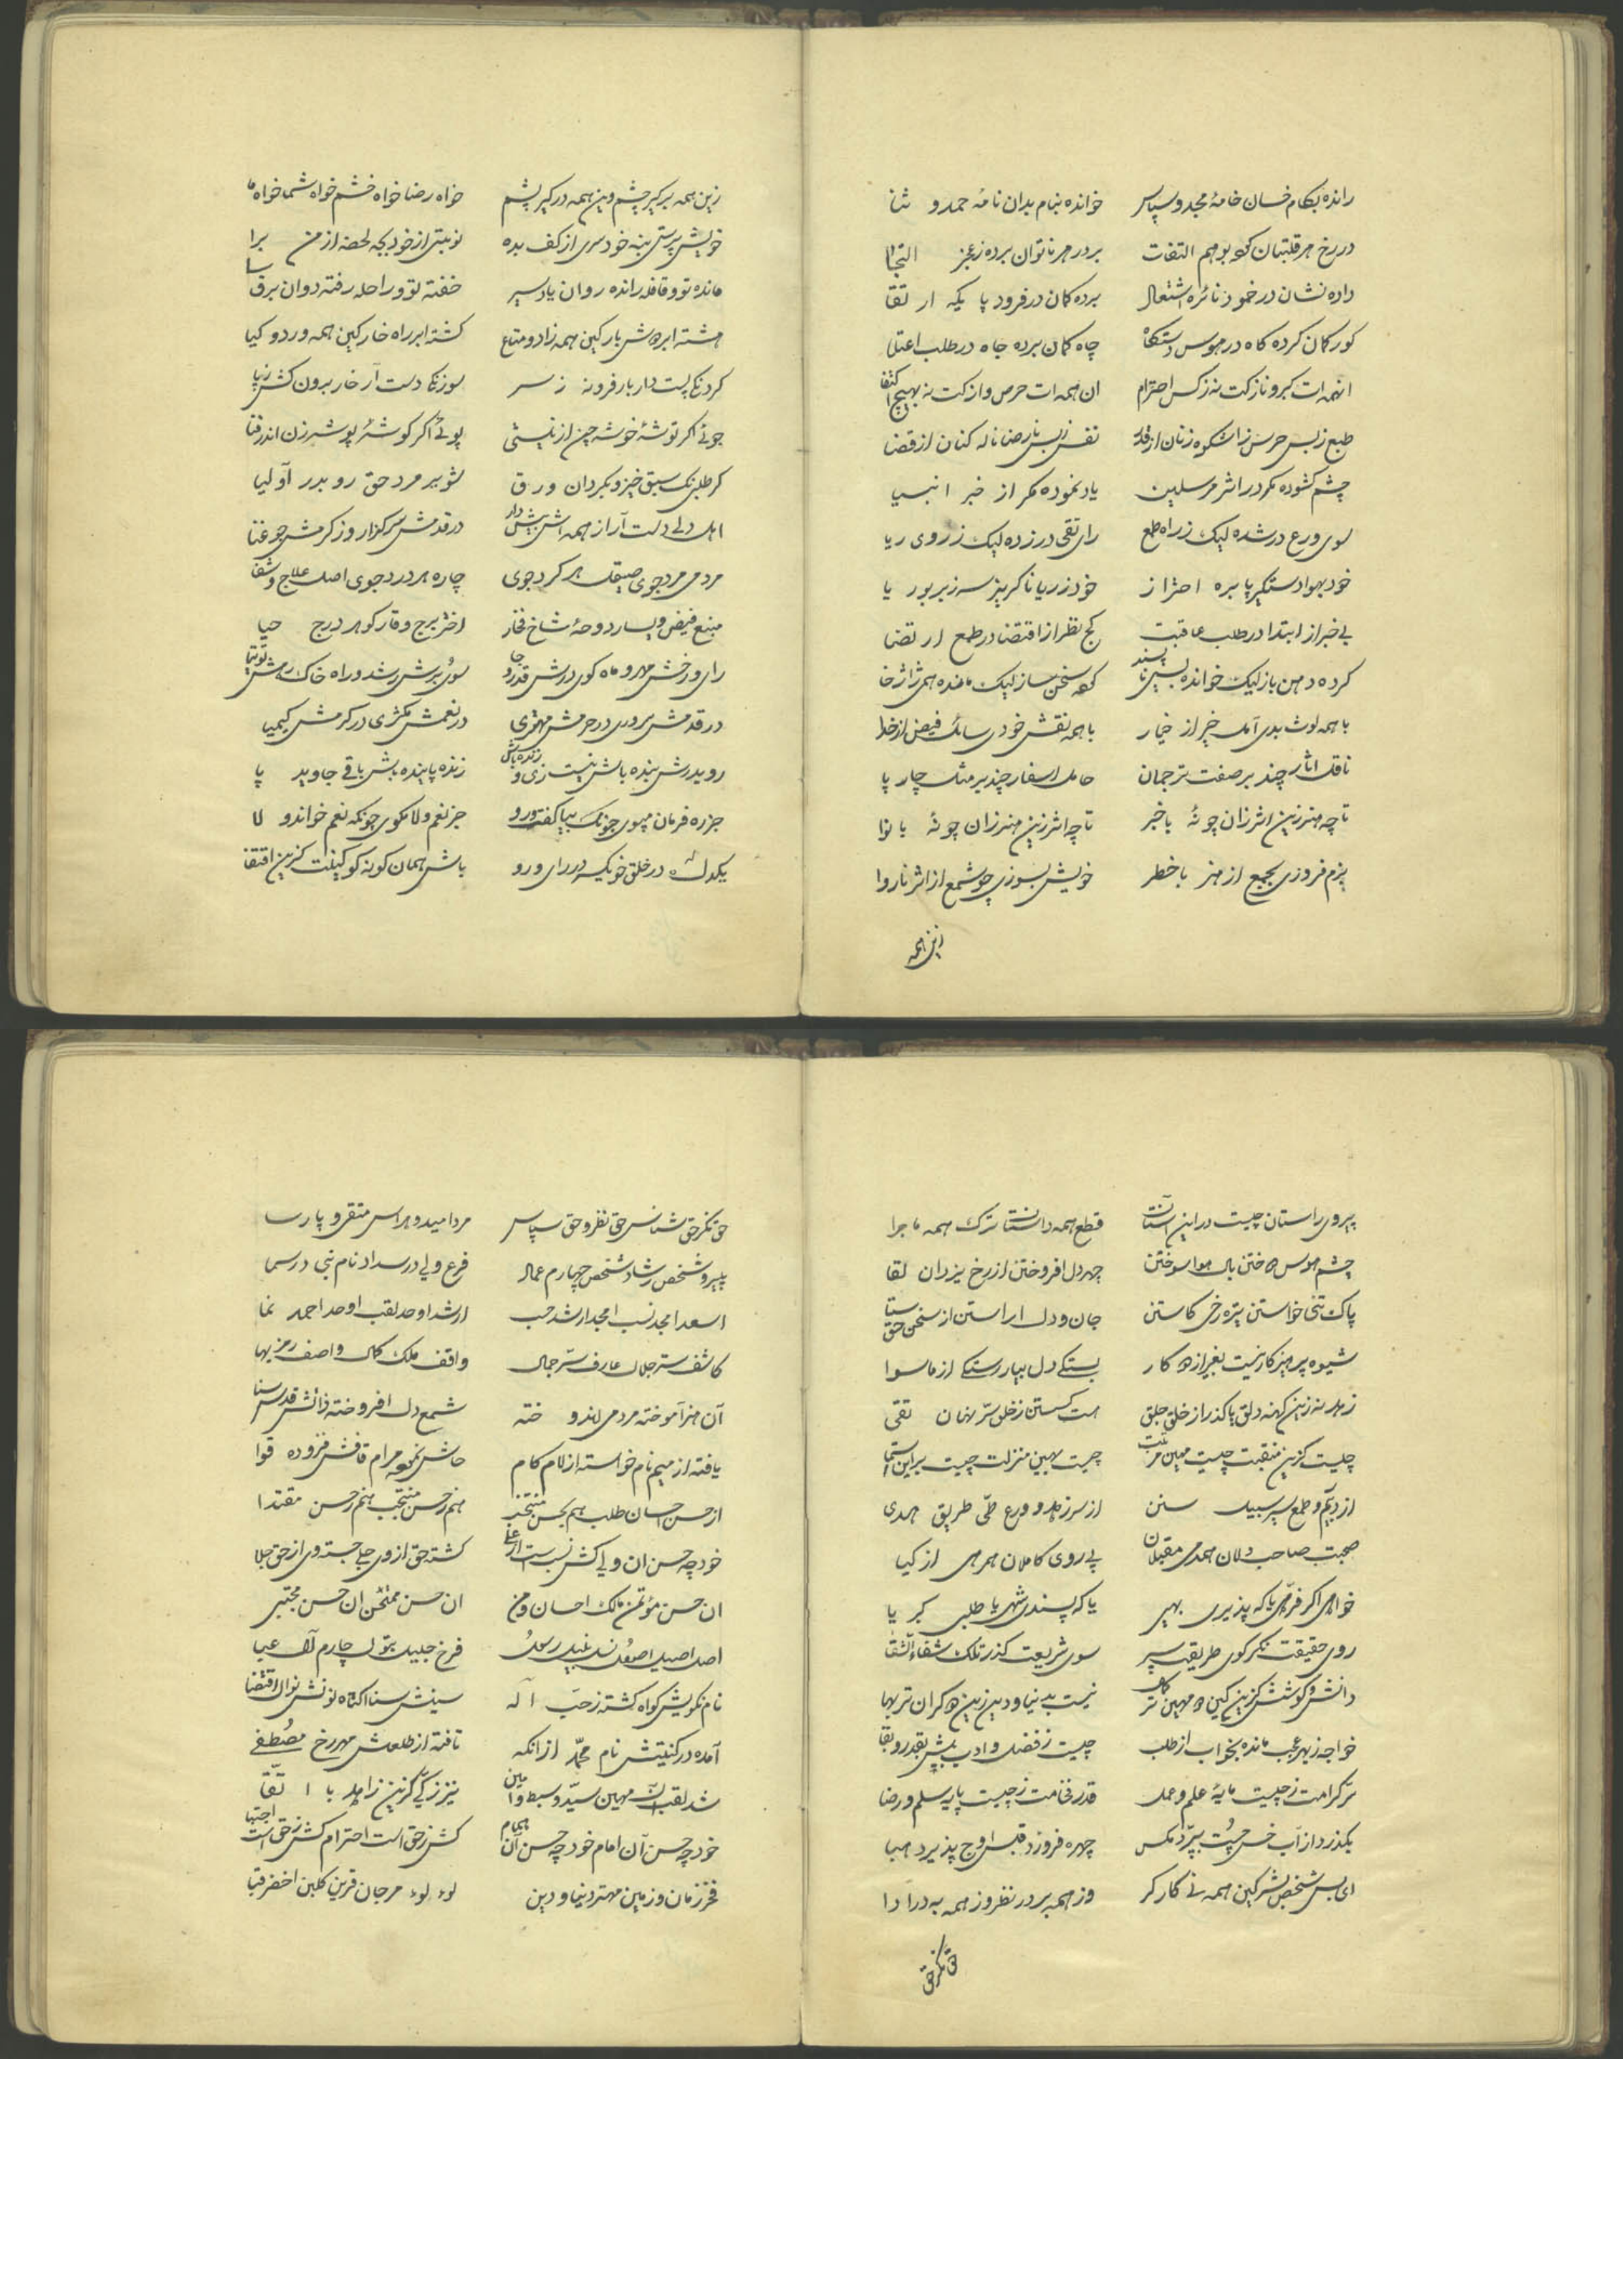 رانده بکام خسان خامهٔ مجد و سپاس خوانده بنام بدان نامهٔ حمد و ثنا
در رخ هر قلتبان بو هم التفات بر در هر ناتوان برده ز عجز التجا
داده نشان در خمود نائره اشتعال برده کمان در فرود پا یکه ارتقا
کور کمان کرده کاه در هوس دستکاه چاه کمان برده جاه در طلب اعتلا
اینهمه ات کبر و ناز کت نه ز کس احترام ان همه ات حرص و از کت نه بهیچ اکتفا
طبع ز بس حرص زا شکوه زنان از قدر نفس ز بس نارضا ناله کنان از قضا
چشم کشوده مکر در اثر مرسلین یاد نموده مکر از خبر انبیا
سوی ورع در شده لیک ز راه طمع رای تقی در زده لیک ز روی ریا
خود بهوا دستکیر پا بره احتراز خود ز ریا ناکریز سه زبر بوریا
بی خبر از ابتدا در طلب عاقبت کج نظر از اقتضا در طمع ارتضا
کرده دهن باز لیک خوانده بسی ناپسند سخن ساز لیک مانده همی ژاژخا
با همه لوث بدی آمده خیر از خیار با همه نقش خودی سائله فیض از خدا
ناقل اثار چند بر صفت ترجمان حامل اسفار چند بر مثل چارپا
تا چه هنر زین اثر زان چو نهٔ باخبر تا چه اثر زین هنر زان چو نهٔ بانوا
بزم فروزی بجمع از هنر باخطر خویش بسوزی چو شمع از اثر ناروا
زین همه
زین همه بر کیر چشم وین همه در کیر پشم خواه رضا خواه خشم خواه شما خواه ما
خویش پرستی بنه خودسری از کف بده نوبتی از خود بجه لحضهٔ از من برا
مانده تو و قافله رانده روان یاد سیر خفته تو و راحله رفته دوان برق سا
هشته ابر دوش بار کین همه زاد و متاع کشته ابر راه خار کین همه ورد و کیا
کرد نکا پست دار بار فرو نه ز سر سوزنکا دست آر خار برون کش ز پا
جوئی اکر توشهٔ خوشه چن از نیستی پوئی اکر کوشهٔ پوشه زن اندر فنا
کر طلبی یک سبق خیز و بکردان ورق شو بر مرد حق رو بدر آولیا
اهل دلی دست آر از همه اش پیش دار در قدمش سر کزار وز کرمش جو غنا
مردمی مرد جوی صیقل هر کرد جوی چاره هر درد جوی اصل علاج و شفا
منبع فیض و یسار دوحهٔ شاخ فخار اختر برج وقار کوهر درج حیا
رای و رخش مهر و ماه کوی درش قدر و جا سوی برش رشد و راه خاک رهش توتیا
در قدمش سروری در حرمش مهتری در نعمش مکثری در کرمش کیمیا
رو بدرش بنده باش نیست زی و زنده باش زنده پاینده باش باقی جاوید پا
جز ره فرمان مپوی چونک بپا کفت و رو جز نعم و لا مکوی چونکه نعم خواند و لا
یکدله در خلق خو یکسره در رای و رو باش همان کونه کو کیفت کزین اقتفا
پیروی راستان چیست در این آستان قطع همه داستان ترک همه ماجرا
چشم هوس دوختن بال هوا سوختن چهر دل افروختن از رخ یزدان لقا
پاک تنی خواستن تیره رخی کاستن جان و دل اراستن از سخن حق ستا
شیوه پرهیز کار نیست بغیر از دو کار بستکی دل بیار رستکی از ماسوا
زهد نه زین کهنه دلق پا کذر از خلق جلق هست کسستن ز خلق سر نهان تقی
چیست کزین منقبت چیست مهین مرتبت چیست بهین منزلت چیست براین استما
از دیم و طمع سپر سبیل سنن از سر زهد و ورع طی طریق هدی
صحبت صاحب دلان همدمی مقبلان پی روی کاملان همرهی ازکیا
خواهی اکر فرهی یا که پذیری بهی یا که پسندی شهی یا طلبی کبریا
روی حقیقت نکر کوی طریقت سپر سوی شریعت کذر تلک شفاء الشقا
دانش و کوشش کزین کین دو مهین تر کمال نیست بدنیا و دین زین دو کران تر بها
خواجه ز بهر عجب مانده بخواب از طلب چیست ز فضل و ادب بیش بقدر و بقا
تر کرامت ز چیست مایهٔ علم و عمل قدر فخامت ز چیست پایه سلم و رضا
بکذرد از آب خس چست بپرد مکس چهره فروزد قبس اوج پذیرد هبا
ای بس شخص بشر کین همه نی کارکر وز همه بر در نظر وز همه به درآ درا
حق نکر حق
حق نکر حق شناس حق نظر و حق سپاس مرد امید و هراس متقی و پارسا
پیرو شخص رشاد شخص چهارم عماد فرع ولی در سداد نام نبی در سما
اسعد امجد نسب امجد ارشد حسب ارشد اوحد لقب اوحد احمد نما
کاشف ستر جلال عارف سر جمال واقف ملک کمال واصف رمز بها
آن هنر آموخته مردمی اندوخته شمع دل افروخته ذاتش قدس سنا
یافته از میم نام خواسته از لام کام حاش نموده مرام قافش فزوده قوا
از حسن احسان طلب هم بحسن منتخب هم ز حسن منتجب هم ز حسن مقتدا
خود چه حسن ان ولی کش نسبست از علی کشته حق از وی جلی جسته وی از حق جلا
ان حسن مؤتمن مالک احسان و من ان حسن ممتحن ان حسن مجتبی
اصل اصیل اصول رسول فرخ جلیل بتول چارم آل عبا
نام نکویش کواه کشته ز حب اله سینش سنا اکتناه نونش نوال اقتضا
آمده در کنیتش نام محمد از انکه تافته از طلعتش مهر رخ مصطفی
شد لقب آن مهین سید و سبط و امین نیز زکی کزین زاهد با اتقا
خود چه حسن آن امام خود چه حسن آن همام کش ز حق است احترام کش ز حق است اجتبا
فخر زمان و زمین مهتر دنیا و دین لوء لوء مرجان قرین کلبن اخضر قبا